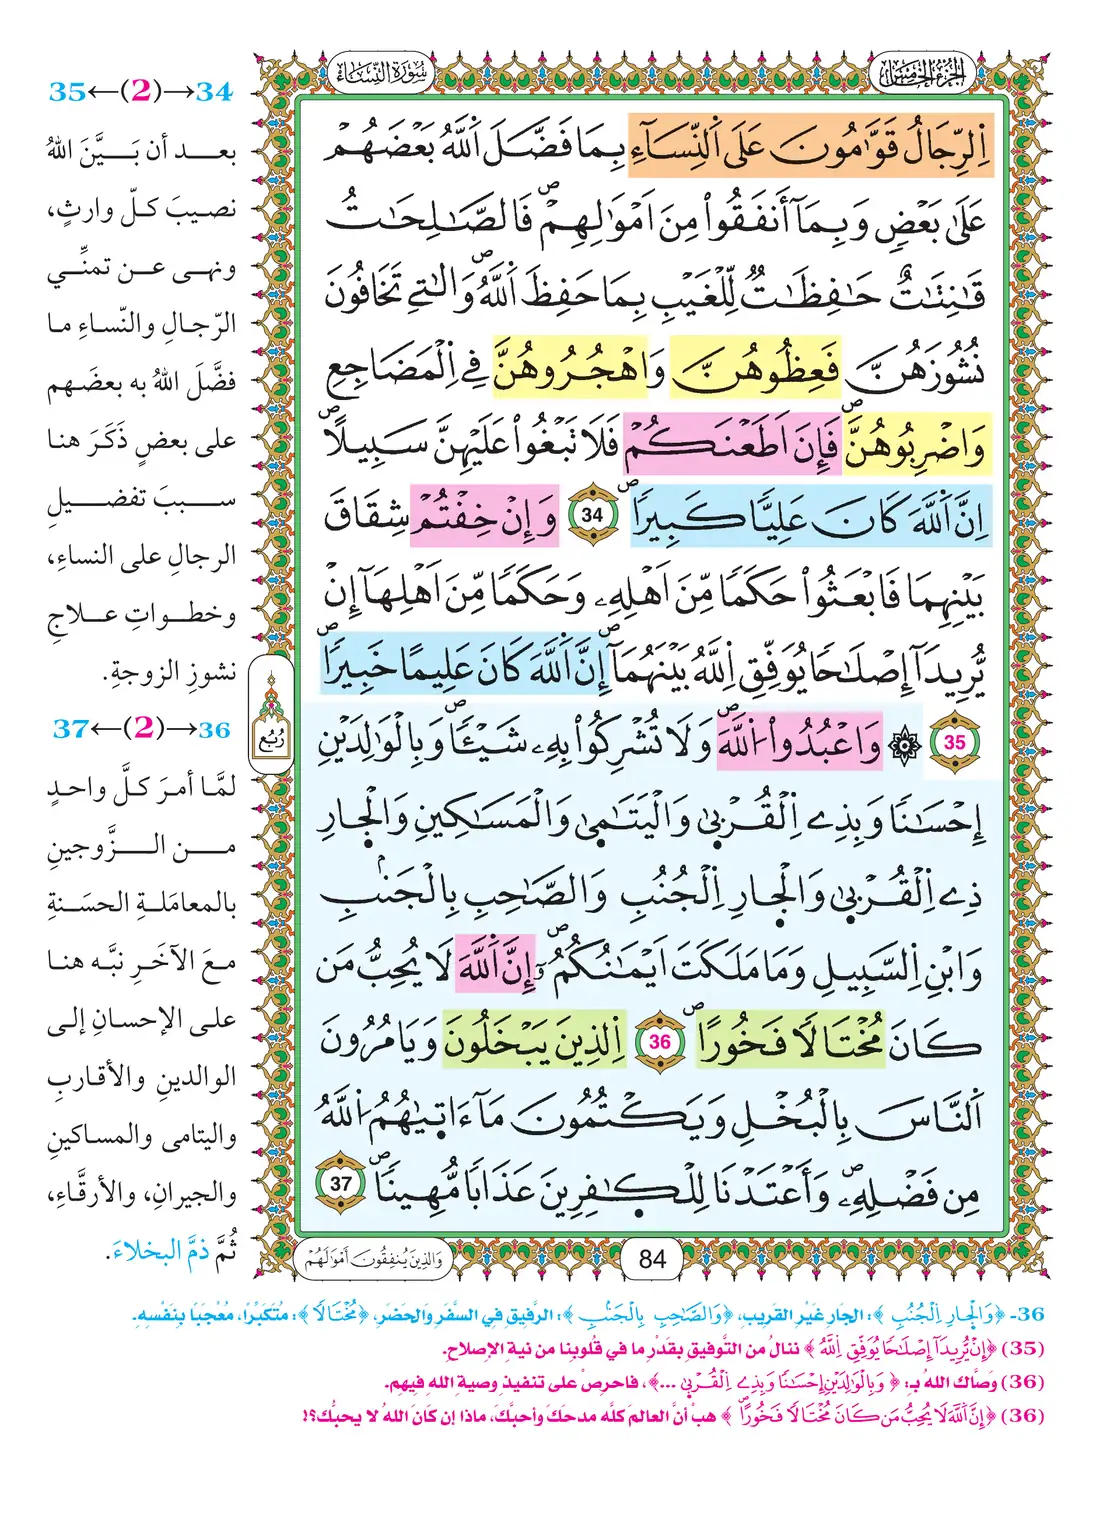 الجزء الخامس
سورة النساء
اِ۬لرِّجَالُ قَوَّٰمُونَ عَلَى اَ۬لنِّسَآءِ بِمَا فَضَّلَ اَ۬للَّهُ بَعْضَهُمْ
عَلَىٰ بَعْضٖ وَبِمَآ أَنفَقُواْ مِنَ اَمْوَٰلِهِمْۖ فَالصَّٰلِحَٰتُ
قَٰنِتَٰتٌ حَٰفِظَٰتٞ لِّلْغَيْبِ بِمَا حَفِظَ اَ۬للَّهُۖ وَالٰتِے تَخَافُونَ
نُشُوزَهُنَّ فَعِظُوهُنَّ وَاهْجُرُوهُنَّ فِے اِ۬لْمَضَاجِعِ
وَاضْرِبُوهُنَّۖ فَإِنَ اَطَعْنَكُمْ فَلَا تَبْغُواْ عَلَيْهِنَّ سَبِيلاًۖ
اِنَّ اَ۬للَّهَ كَانَ عَلِيّاٗ كَبِيراٗۖ 34 وَإِنْ خِفْتُمْ شِقَاقَ
بَيْنِهِمَا فَابْعَثُواْ حَكَماٗ مِّنَ اَهْلِهِۦ وَحَكَماٗ مِّنَ اَهْلِهَآ إِنْ
يُّرِيدَآ إِصْلَٰحاٗ يُوَفِّقِ اِ۬للَّهُ بَيْنَهُمَآۖ إِنَّ اَ۬للَّهَ كَانَ عَلِيماٗ خَبِيراٗۖ
35 ۞ وَاعْبُدُواْ اُ۬للَّهَۖ وَلَا تُشْرِكُواْ بِهِۦ شَيْـٔاٗۖ وَبِالْوَٰلِدَيْنِ
إِحْسَٰناٗ وَبِذِے اِ۬لْقُرْبَىٰ وَالْيَتَٰمَىٰ وَالْمَسَٰكِينِ وَالْجارِ
ذِے اِ۬لْقُرْبَىٰ وَالْجارِ اِ۬لْجُنُبِ وَالصَّاحِبِ بِالْجَنۢبِ
وَابْنِ اِ۬لسَّبِيلِ وَمَا مَلَكَتَ اَيْمَٰنُكُمُۥٓۖ إِنَّ اَ۬للَّهَ لَا يُحِبُّ مَن
كَانَ مُخْتَالاٗ فَخُوراًۖ 36 اِ۬لذِينَ يَبْخَلُونَ وَيَامُرُونَ
اَ۬لنَّاسَ بِالْبُخْلِ وَيَكْتُمُونَ مَآ ءَاتٜيٰهُمُ اُ۬للَّهُ
مِن فَضْلِهِۦۖ وَأَعْتَدْنَا لِلْكٰ۪فِرِينَ عَذَاباٗ مُّهِيناٗۖ 37
84
وَالذِينَ يُنفِقُونَ أَمْوَٰلَهُمْ
رُبُع
34→(2)←35
بعد أن بَيَّنَ اللهُ
نصيبَ كلّ وارثٍ،
ونهى عن تمنِّي
الرّجالِ والنّساءِ ما
فضَّلَ اللهُ به بعضَهم
على بعضٍ ذَكَرَ هنا
سببَ تفضيلِ
الرجالِ على النساءِ،
وخطواتِ علاجِ
نشوزِ الزوجةِ.
36→(2)←37
لمَّا أمرَ كلَّ واحدٍ
من الزَّوجينِ
بالمعامَلةِ الحسَنةِ
معَ الآخَرِ نبَّه هنا
على الإحسانِ إلى
الوالدينِ والأقاربِ
واليتامى والمساكينِ
والجيرانِ، والأرقَّاءِ،
ثُمَّ ذمَّ البخلاءَ.
36- ﴿وَالْجارِ اِ۬لْجُنُبِ﴾: الجار غَيْر القَريبِ، ﴿وَالصَّاحِبِ بِالْجَنۢبِ﴾: الرَّفيق في السَّفَر وَالحَضَر، ﴿مُخْتَالاٗ﴾: مُتَكَبِّرًا، مُعْجَبًا بِنَفْسِهِ.
(35) ﴿إِنْ يُّرِيدَآ إِصْلَٰحاٗ يُوَفِّقِ اِ۬للَّهُ﴾ ننالُ من التَّوفيقِ بقَدْرِ ما في قلُوبِنا من نية الإصلاحِ.
(36) وَصَّاكَ اللهُ بـ: ﴿وَبِالْوَٰلِدَيْنِ إِحْسَٰناٗ وَبِذِے اِ۬لْقُرْبَىٰ ...﴾، فاحرصْ على تنفيذِ وصيةِ اللهِ فيهم.
(36) ﴿إِنَّ اَ۬للَّهَ لَا يُحِبُّ مَن كَانَ مُخْتَالاٗ فَخُوراًۖ﴾ هبْ أنَّ العالمَ كلَّه مدحَكَ وأحبَّكَ، ماذا إن كَانَ اللهُ لا يحبُّك؟!